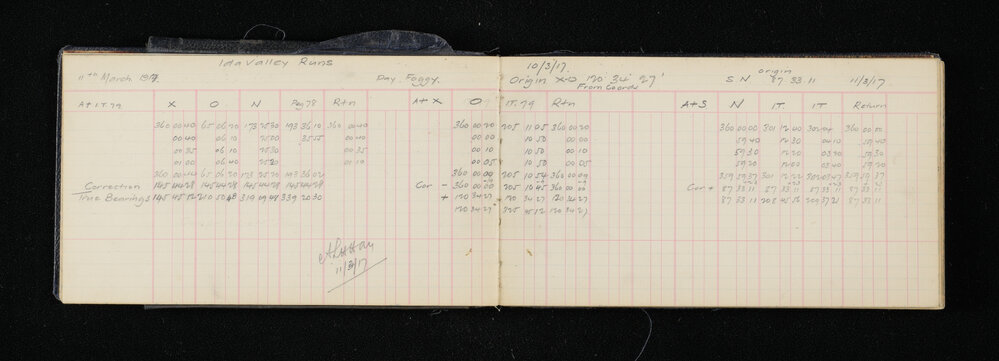 Ida Valley Runs
11th March 1917. Day. Foggy.
At I.T. 79 X O N Peg 78 Rtn
360 00 40 65 06 20 173 25 30 193 36 10 360 00 40
00 40 06 10 25 00 35 55 00 40
00 35 06 10 25 30 00 35
01 00 06 40 25 20 00 10
360 00 44 65 06 20 173 25 20 193 36 02
Correction 145 44 28 145 44 28 145 44 28 145 44 28
True Bearings 145 45 12 210 50 48 319 09 48 339 20 30
11/3/17
10/3/17.
Origin X-O 120° 34' 27"
From Coords
At X O I.T. 79 Rtn
360 00 20 205 11 05 360 00 20
00 00 10 50 00 00
00 10 10 50 00 10
00 05 10 50 00 05
360 00 09 205 10 54 360 00 09
Cor - 360 00 00 205 10 45 360 00 00
+ 120 34 27 120 34 27 120 34 27
120 34 27 325 45 12 120 34 27
origin
S N 87 33 11 11/3/17
At S N IT IT Return
360 00 00 301 12 40 360 00 00
59 40 12 30 04 10 59 40
59 30 12 20 03 30 59 30
59 20 12 00 03 40 59 20
359 59 37 301 12 22 359 59 37
Cor + 87 33 11 87 33 11 87 33 11 87 33 11
87 33 11 87 33 11